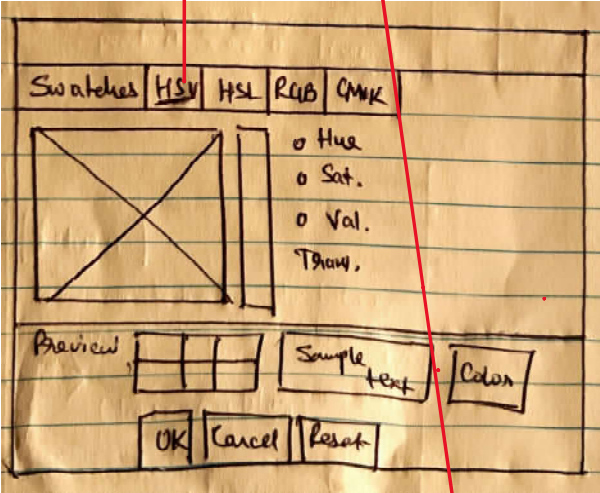 Swatches HSV HSL RGB CMYK
Hue
Sat.
Val.
Tran.
Preview
Sample text
Color
OK Cancel Reset